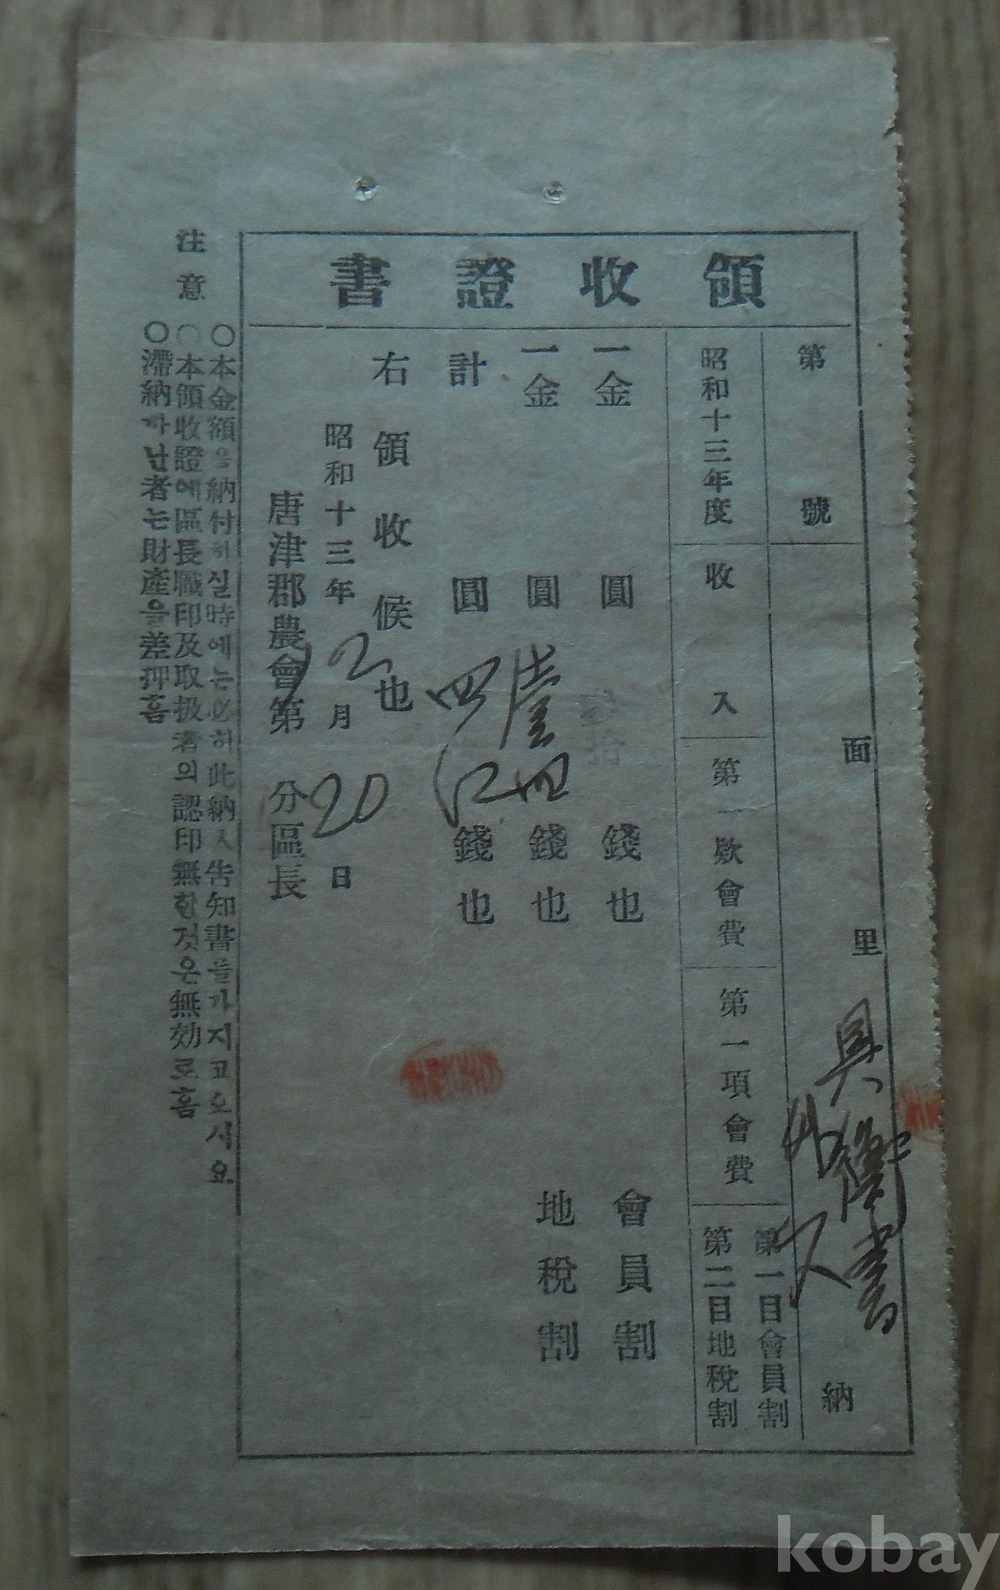 領收證書
第 號
面 里 納
昭和十三年度
收 入
第一欵會費
第一項會費
第一目會員割
第二目地稅割
一金 圓 錢也 會員割
一金 圓 錢也 地稅割
計 圓 錢也
右領收候也
昭和十三年12月20日
唐津郡農會第 分區長
注意
○本金額을納付하실時에는必히此納入告知書를가지고오시요
○本領收證에區長職印及取扱者의認印無한것은無効로홈
○滯納하난者는財產을差押홈
kobay